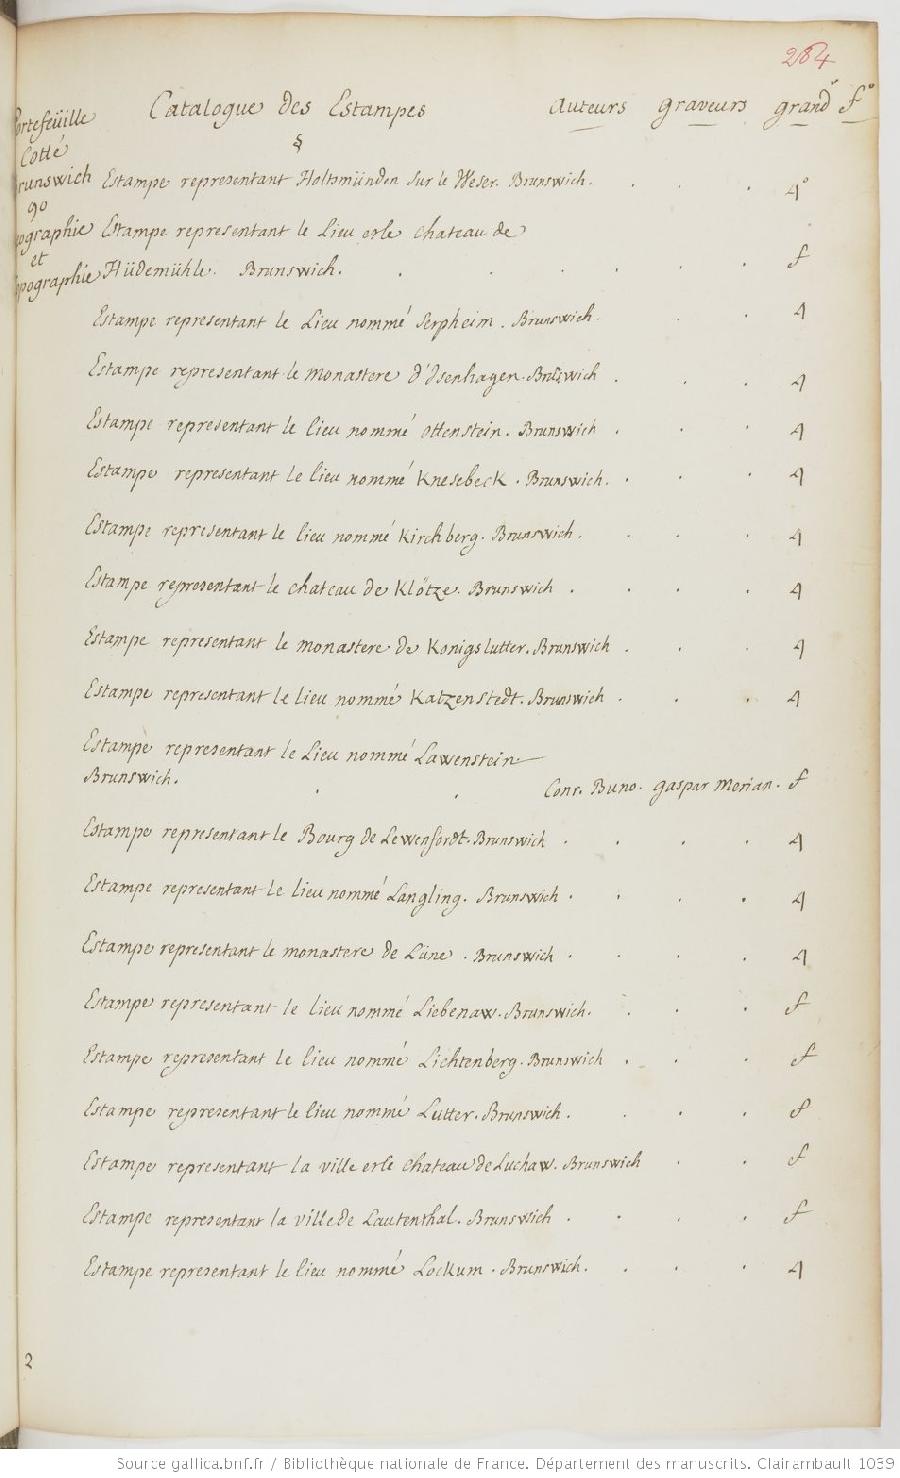 284
Catalogue des Estampes auteurs graveurs grandr fo
§
Portefeüille
Cotté
Brunswich
90
Geographie
et
Topographie
Estampe representant Holtsmünden sur le Weser. Brunswich. 4o
Estampe representant le Lieu et le chateau de
Hüdemühle. Brunswich. f
Estampe representant le Lieu nommé Jerpheim. Brunswich. 4
Estampe representant le monastere d'Isenhagen. Brüswich. 4
Estampe representant le lieu nommé ottenstein. Brunswich. 4
Estampe representant le lieu nommé Knesebeck. Brunswich. 4
Estampe representant le lieu nommé Kirchberg. Brunswich. 4
Estampe representant le chateau de Klötze. Brunswich. 4
Estampe representant le monastere de Konigslutter. Brunswich. 4
Estampe representant le lieu nommé Katzenstedt. Brunswich. 4
Estampe representant le Lieu nommé Lawenstein
Brunswich. Conr. Buno. gaspar Merian. f
Estampe representant le Bourg de Lewenfordt. Brunswich. 4
Estampe representant le lieu nommé Langling. Brunswich. 4
Estampe representant le monastere de Lüne. Brunswich. 4
Estampe representant le lieu nommé Liebenaw. Brunswich. f
Estampe representant le lieu nommé Lichtenberg. Brunswich. f
Estampe representant le lieu nommé Lutter. Brunswich. f
Estampe representant la ville et le chateau de Luchaw. Brunswich. f
Estampe representant la ville de Lautenthal. Brunswich. f
Estampe representant le lieu nommé Lockum. Brunswich. 4
2
Source gallica.bnf.fr / Bibliothèque nationale de France. Département des manuscrits. Clairambault 1039